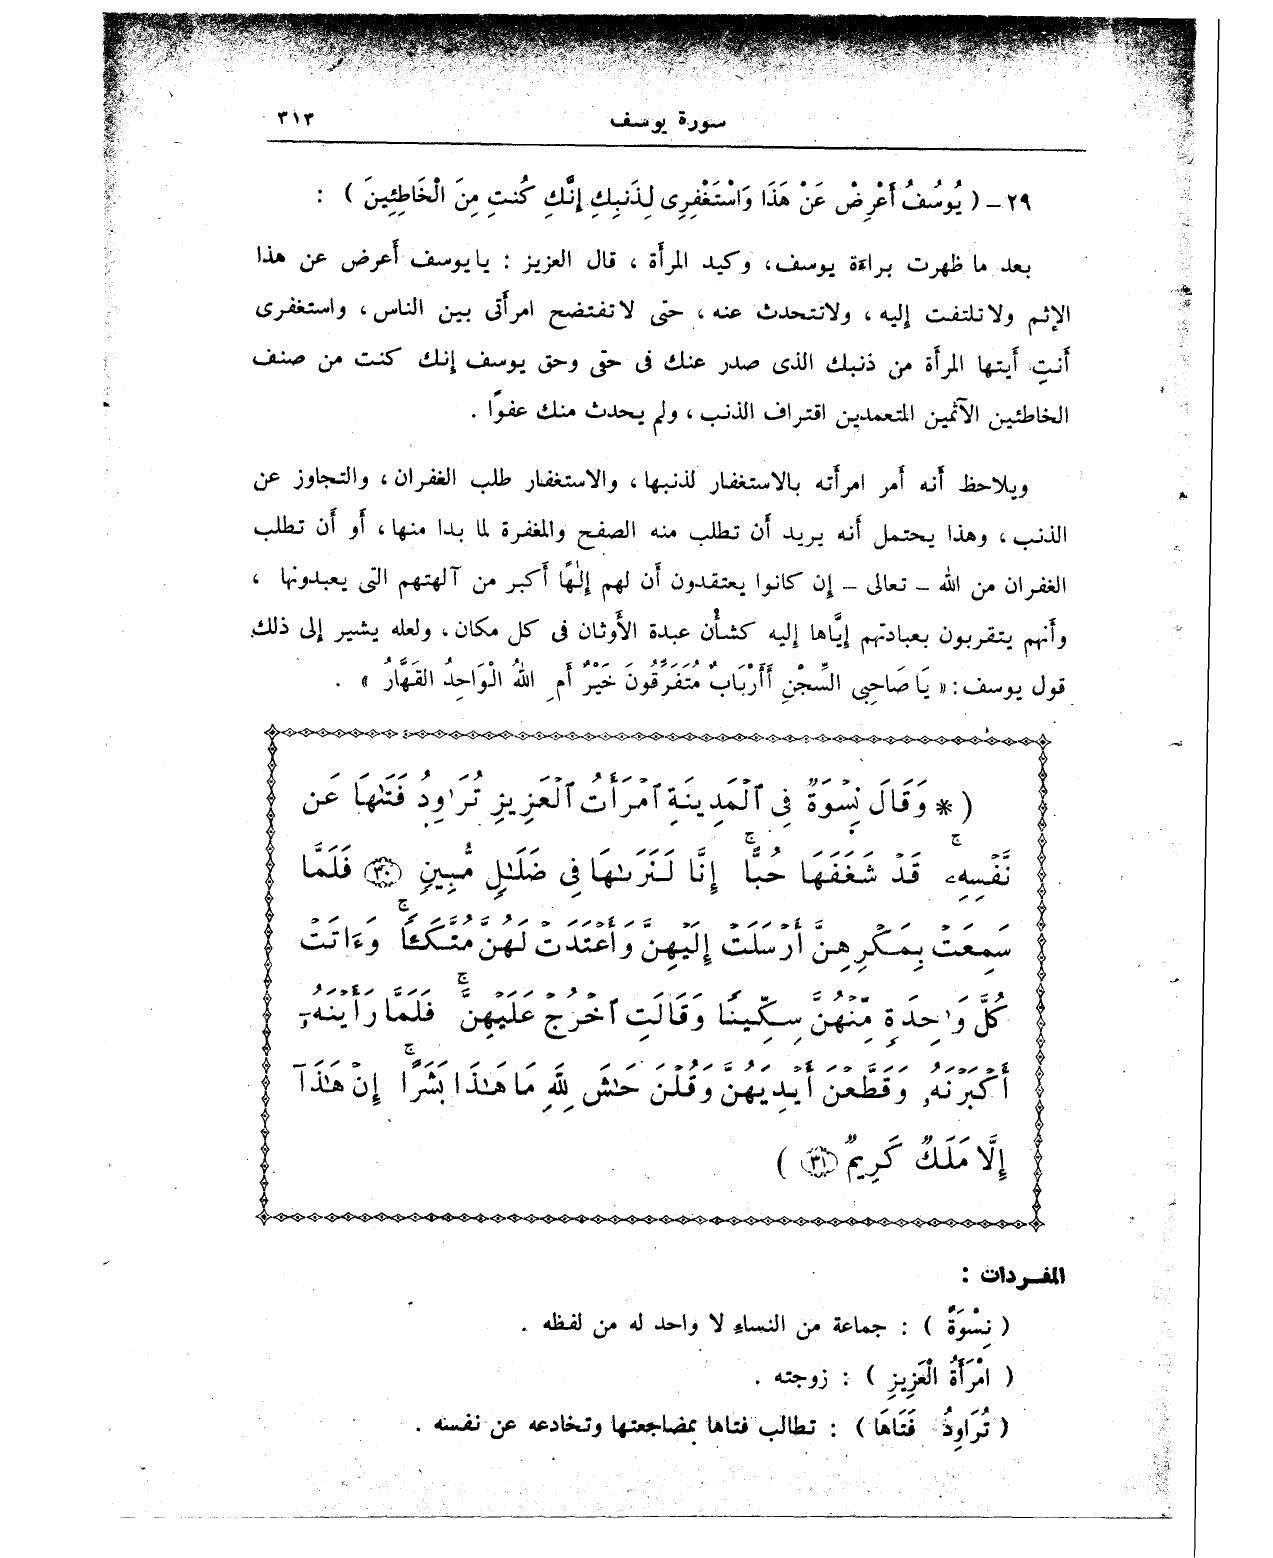 سورة يوسف ٣١٣
٢٩ - ( يُوسُفُ أَعْرِضْ عَنْ هَذَا وَاسْتَغْفِرِى لِذَنبِكِ إِنَّكِ كُنتِ مِنَ الْخَاطِئِينَ ) :
بعد ما ظهرت براءة يوسف، وكيد المرأة ، قال العزيز : يايوسف أعرض عن هذا
الإثم ولاتلتفت إليه ، ولاتتحدث عنه ، حتى لاتفتضح امرأتى بين الناس ، واستغفرى
أنتِ أيتها المرأة من ذنبك الذى صدر عنك فى حتى وحق يوسف إنك كنت من صنف
الخاطئين الآثمين المتعمدين اقتراف الذنب ، ولم يحدث منك عفوًا .
ويلاحظ أنه أمر امرأته بالاستغفار لذنبها ، والاستغفار طلب الغفران ، والتجاوز عن
الذنب ، وهذا يحتمل أنه يريد أن تطلب منه الصفح والمغفرة لما بدا منها ، أو أن تطلب
الغفران من الله - تعالى - إن كانوا يعتقدون أن لهم إلٰهًا أكبر من آلهتهم التى يعبدونها ،
وأنهم يتقربون بعبادتهم إيَّاها إليه كشأْن عبدة الأوثان فى كل مكان ، ولعله يشير إلى ذلك
قول يوسف : « يَا صَاحِبِى السِّجْنِ أَأَرْبَابٌ مُتَفَرِّقُونَ خَيْرٌ أَمِ اللهُ الْوَاحِدُ القَهَّارُ » .
( * وَقَالَ نِسْوَةٌ فِى ٱلْمَدِينَةِ ٱمْرَأَتُ ٱلْعَزِيزِ تُرَٰوِدُ فَتَىٰهَا عَن
نَّفْسِهِۦ ۖ قَدْ شَغَفَهَا حُبًّا ۖ إِنَّا لَنَرَىٰهَا فِى ضَلَٰلٍ مُّبِينٍ ٣٠ فَلَمَّا
سَمِعَتْ بِمَكْرِهِنَّ أَرْسَلَتْ إِلَيْهِنَّ وَأَعْتَدَتْ لَهُنَّ مُتَّكَـًٔا ۖ وَءَاتَتْ
كُلَّ وَٰحِدَةٍ مِّنْهُنَّ سِكِّينًا وَقَالَتِ ٱخْرُجْ عَلَيْهِنَّ ۖ فَلَمَّا رَأَيْنَهُۥٓ
أَكْبَرْنَهُۥ وَقَطَّعْنَ أَيْدِيَهُنَّ وَقُلْنَ حَٰشَ لِلَّهِ مَا هَٰذَا بَشَرًا ۚ إِنْ هَٰذَآ
إِلَّا مَلَكٌ كَرِيمٌ ٣١ )
المفـردات :
( نِسْوَةٌ ) : جماعة من النساءِ لا واحد له من لفظه .
( امْرَأَةُ الْعَزِيزِ ) : زوجته .
( تُرَاوِدُ فَتَاهَا ) : تطالب فتاها بمضاجعتها وتخادعه عن نفسه .